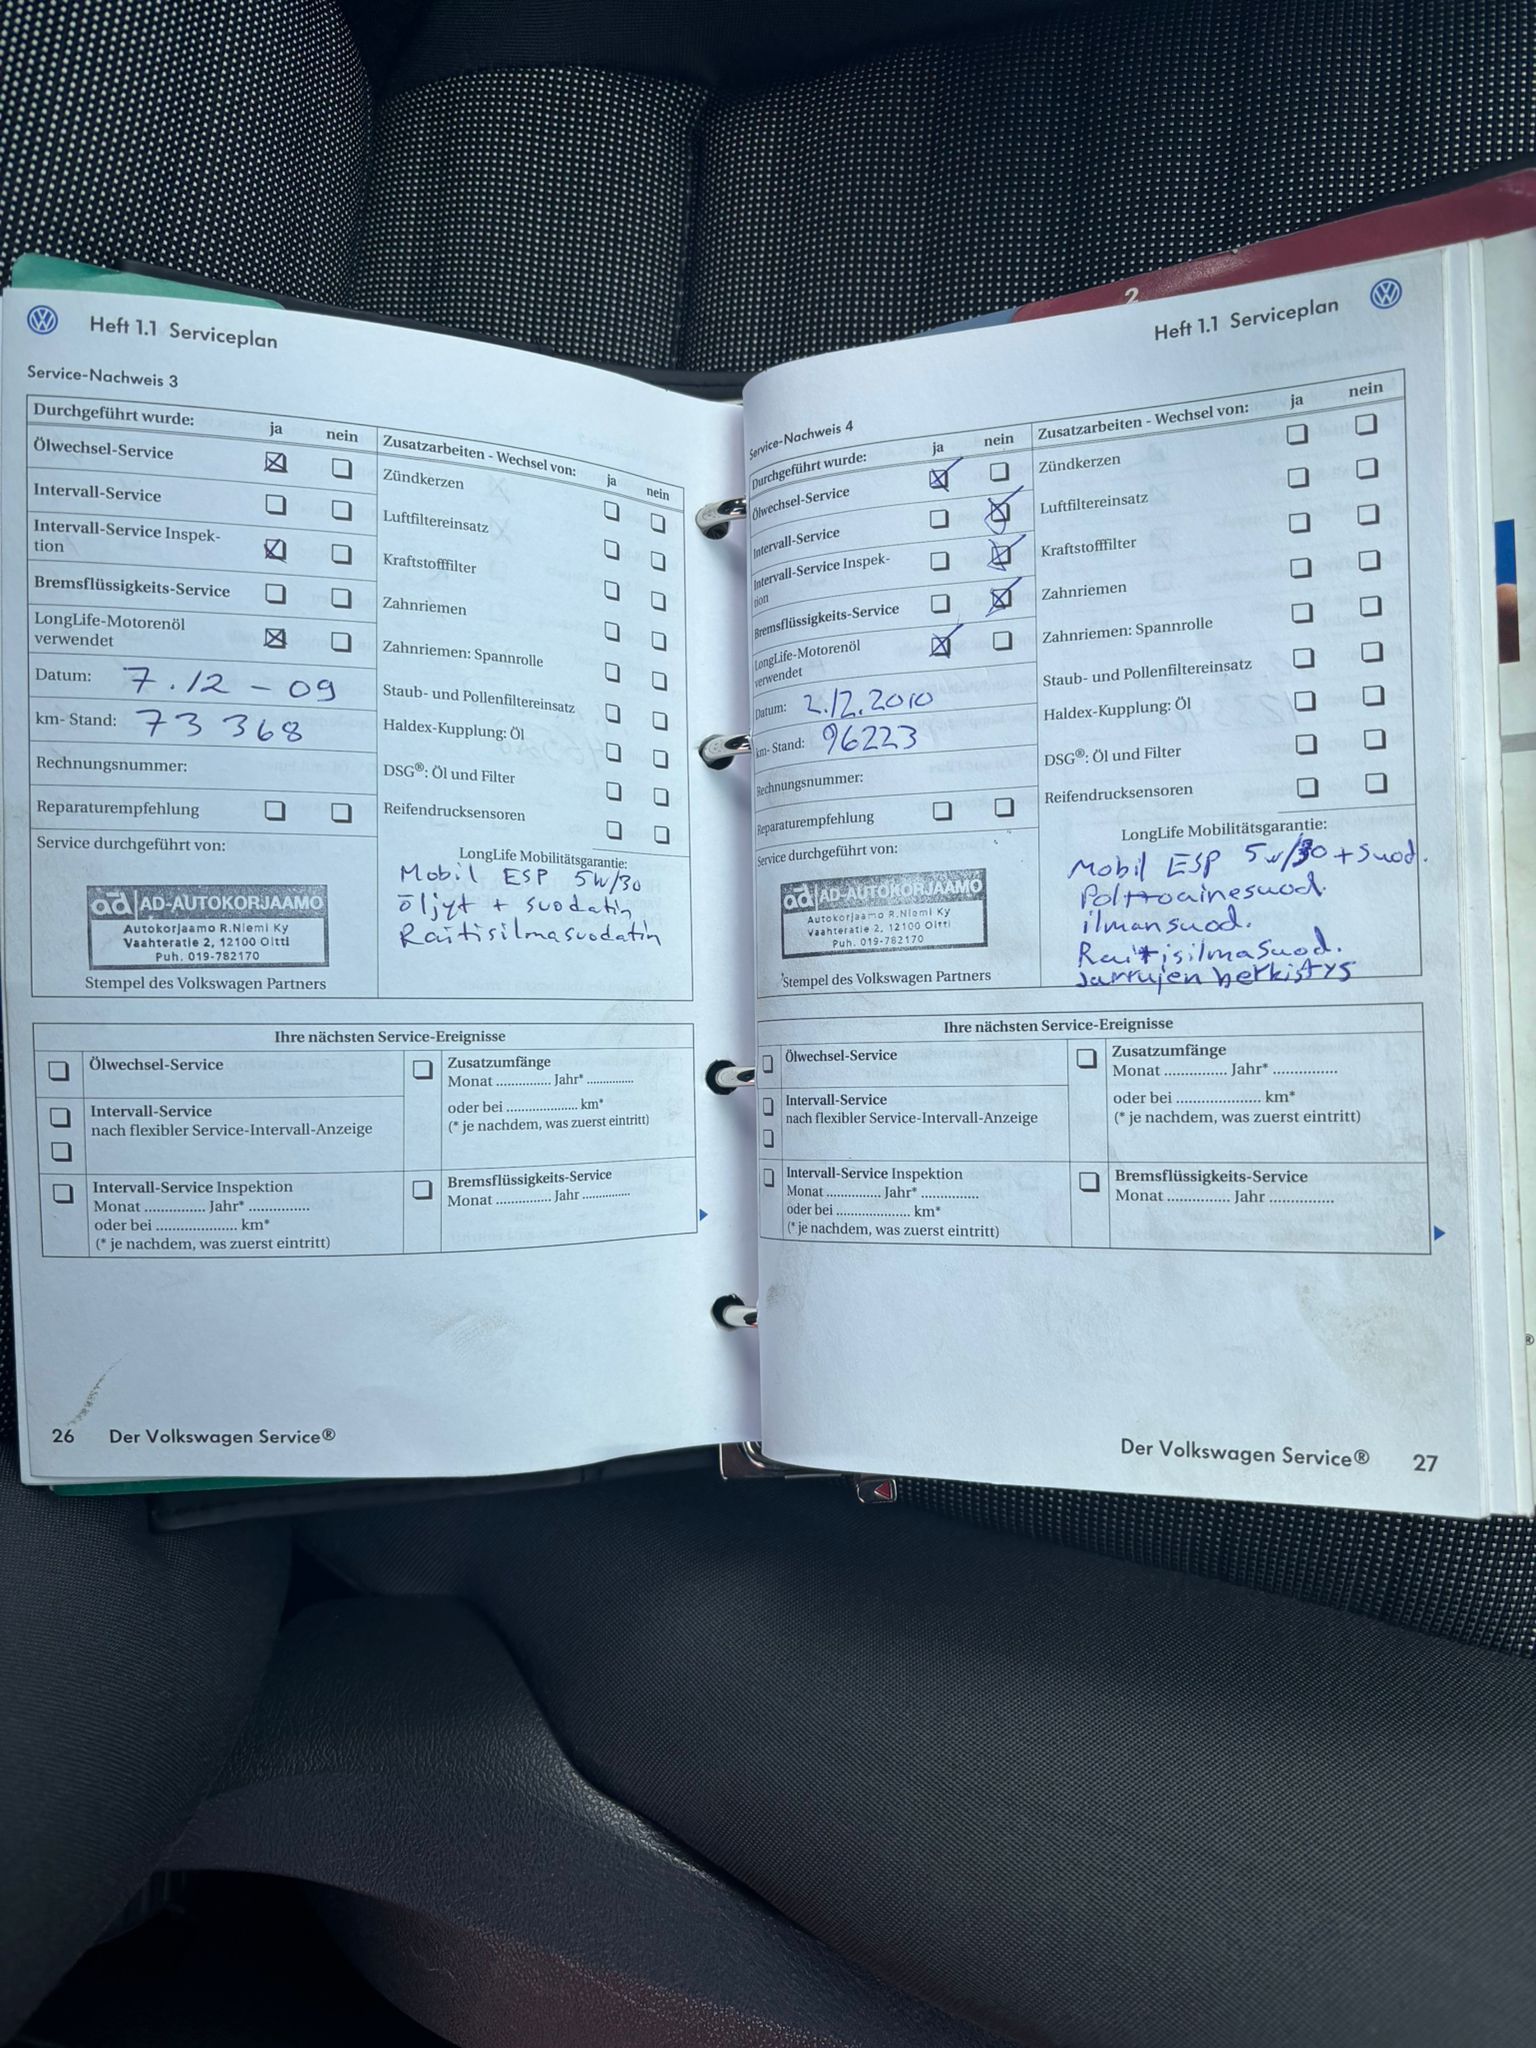 Heft 1.1 Serviceplan
Service-Nachweis 3
Durchgeführt wurde: ja nein
Ölwechsel-Service
Intervall-Service
Intervall-Service Inspek-
tion
Bremsflüssigkeits-Service
LongLife-Motorenöl
verwendet
Datum: 7.12-09
km-Stand: 73 368
Rechnungsnummer:
Reparaturempfehlung
Service durchgeführt von:
ad AD-AUTOKORJAAMO
Autokorjaamo R.Niemi Ky
Vaahteratie 2, 12100 Oitti
Puh. 019-782170
Stempel des Volkswagen Partners
Zusatzarbeiten - Wechsel von: ja nein
Zündkerzen
Luftfiltereinsatz
Kraftstofffilter
Zahnriemen
Zahnriemen: Spannrolle
Staub- und Pollenfiltereinsatz
Haldex-Kupplung: Öl
DSG®: Öl und Filter
Reifendrucksensoren
LongLife Mobilitätsgarantie:
Mobil ESP 5W/30
öljyt + suodatin
Raitisilmasuodatin
Ihre nächsten Service-Ereignisse
Ölwechsel-Service
Intervall-Service
nach flexibler Service-Intervall-Anzeige
Intervall-Service Inspektion
Monat ............... Jahr* ...............
oder bei .................... km*
(* je nachdem, was zuerst eintritt)
Zusatzumfänge
Monat .............. Jahr* ............
oder bei .................. km*
(* je nachdem, was zuerst eintritt)
Bremsflüssigkeits-Service
Monat .............. Jahr ............
26 Der Volkswagen Service®
2
Heft 1.1 Serviceplan
Service-Nachweis 4
Durchgeführt wurde: ja nein
Ölwechsel-Service
Intervall-Service
Intervall-Service Inspek-
tion
Bremsflüssigkeits-Service
LongLife-Motorenöl
verwendet
Datum: 2.12.2010
km-Stand: 96223
Rechnungsnummer:
Reparaturempfehlung
Service durchgeführt von:
ad AD-AUTOKORJAAMO
Autokorjaamo R.Niemi Ky
Vaahteratie 2, 12100 Oitti
Puh. 019-782170
Stempel des Volkswagen Partners
Zusatzarbeiten - Wechsel von: ja nein
Zündkerzen
Luftfiltereinsatz
Kraftstofffilter
Zahnriemen
Zahnriemen: Spannrolle
Staub- und Pollenfiltereinsatz
Haldex-Kupplung: Öl
DSG®: Öl und Filter
Reifendrucksensoren
LongLife Mobilitätsgarantie:
Mobil ESP 5w/30 + suod.
Polttoainesuod.
ilmansuod.
Raitisilmasuod.
Jarrujen herkistys
Ihre nächsten Service-Ereignisse
Ölwechsel-Service
Intervall-Service
nach flexibler Service-Intervall-Anzeige
Intervall-Service Inspektion
Monat ............. Jahr* ..............
oder bei .................... km*
(* je nachdem, was zuerst eintritt)
Zusatzumfänge
Monat ............... Jahr* ................
oder bei ..................... km*
(* je nachdem, was zuerst eintritt)
Bremsflüssigkeits-Service
Monat ............... Jahr ................
Der Volkswagen Service® 27